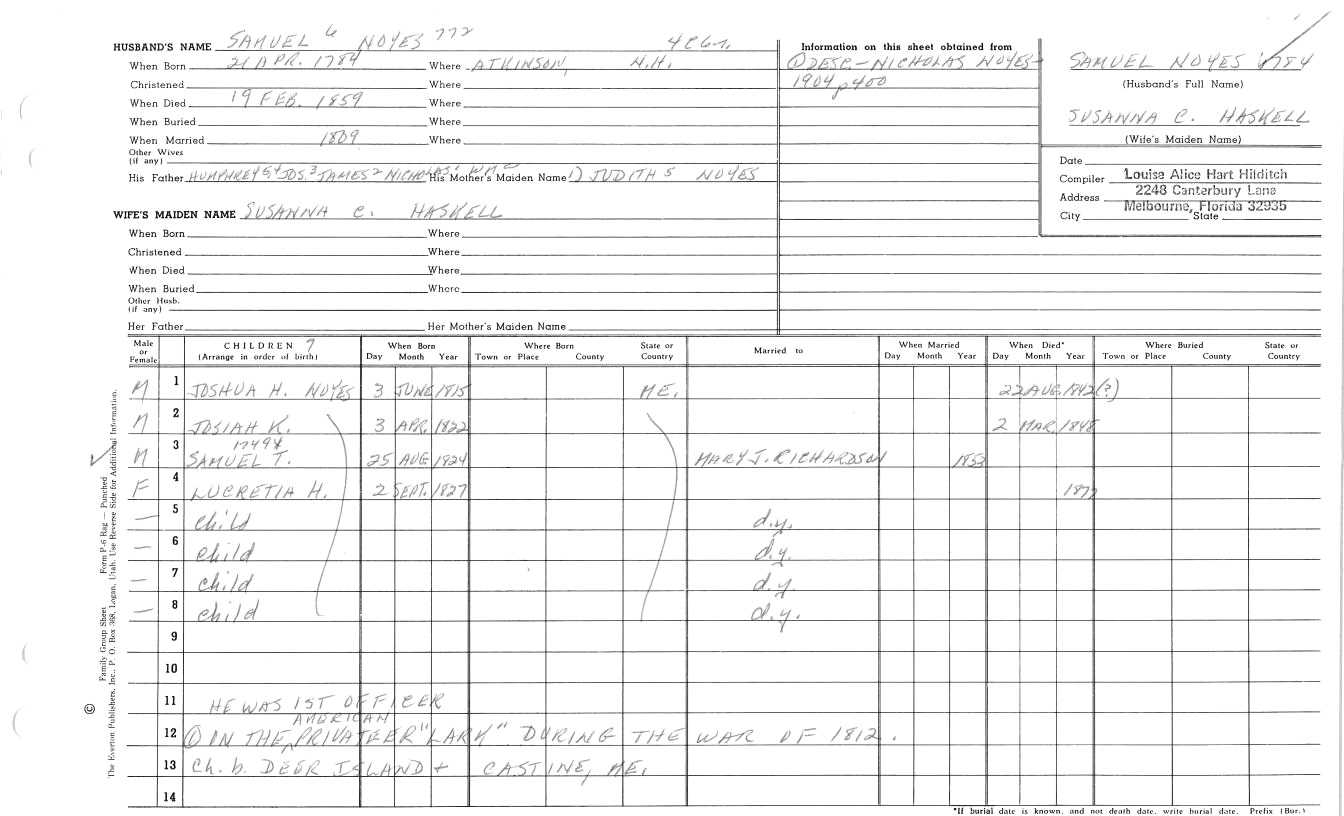 HUSBAND'S NAME SAMUEL 6 NOYES 772
When Born 21 APR. 1784 Where ATKINSON, N.H.
Christened Where
When Died 19 FEB. 1859 Where
When Buried Where
When Married 1809 Where
Other Wives
(if any)
His Father HUMPHREY 5, 4 JOS. 3 JAMES 2 NICHOLAS 1 WM His Mother's Maiden Name 1) JUDITH 5 NOYES
Information on this sheet obtained from
① DESC. - NICHOLAS NOYES -
1904 p400
SAMUEL NOYES 1784
(Husband's Full Name)
SUSANNA C. HASKELL
(Wife's Maiden Name)
Date
Compiler Louise Alice Hart Hilditch
Address 2248 Canterbury Lane
Melbourne, Florida 32935
City State
WIFE'S MAIDEN NAME SUSANNA C. HASKELL
When Born Where
Christened Where
When Died Where
When Buried Where
Other Husb.
(if any)
Her Father Her Mother's Maiden Name
Male or Female CHILDREN 7 (Arrange in order of birth) When Born Day Month Year Where Born Town or Place County State or Country Married to When Married Day Month Year When Died* Day Month Year Where Buried Town or Place County State or Country
M 1 JOSHUA H. NOYES 3 JUNE 1815 ME. 22 AUG. 1842 (?)
M 2 JOSIAH K. 3 APR. 1822 2 MAR. 1848
1749
M 3 SAMUEL T. 25 AUG 1824 MARY J. RICHARDSON 1853
F 4 LUCRETIA H. 2 SEPT. 1827 1877
— 5 child d.y.
— 6 child d.y.
— 7 child d.y
— 8 child d.y.
9
10
11 HE WAS 1ST OFFICER
AMERICAN
12 ① ON THE PRIVATEER "LARK" DURING THE WAR OF 1812.
13 Ch. b. DEER ISLAND + CASTINE, ME.
14
*If burial date is known, and not death date, write burial date. Prefix (Bur.)
Family Group Sheet Form P-6 Rag — Punched
© The Everton Publishers, Inc., P. O. Box 368, Logan, Utah. Use Reverse Side for Additional Information.